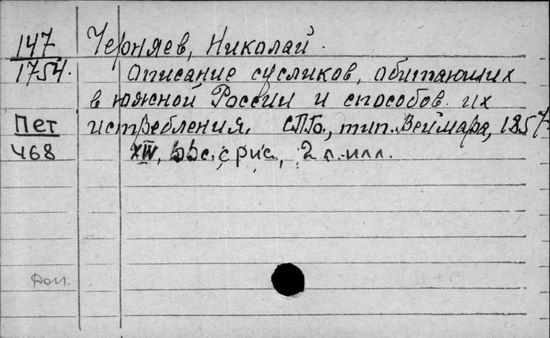 147 Черняев, Николай.
1754. Описание сусликов, обитающих
в южной России и способов их
Пет истребления. СПб., тип. Веймара, 1857
468 XIV, 66с. с рис., 2 л. илл.
Доп.